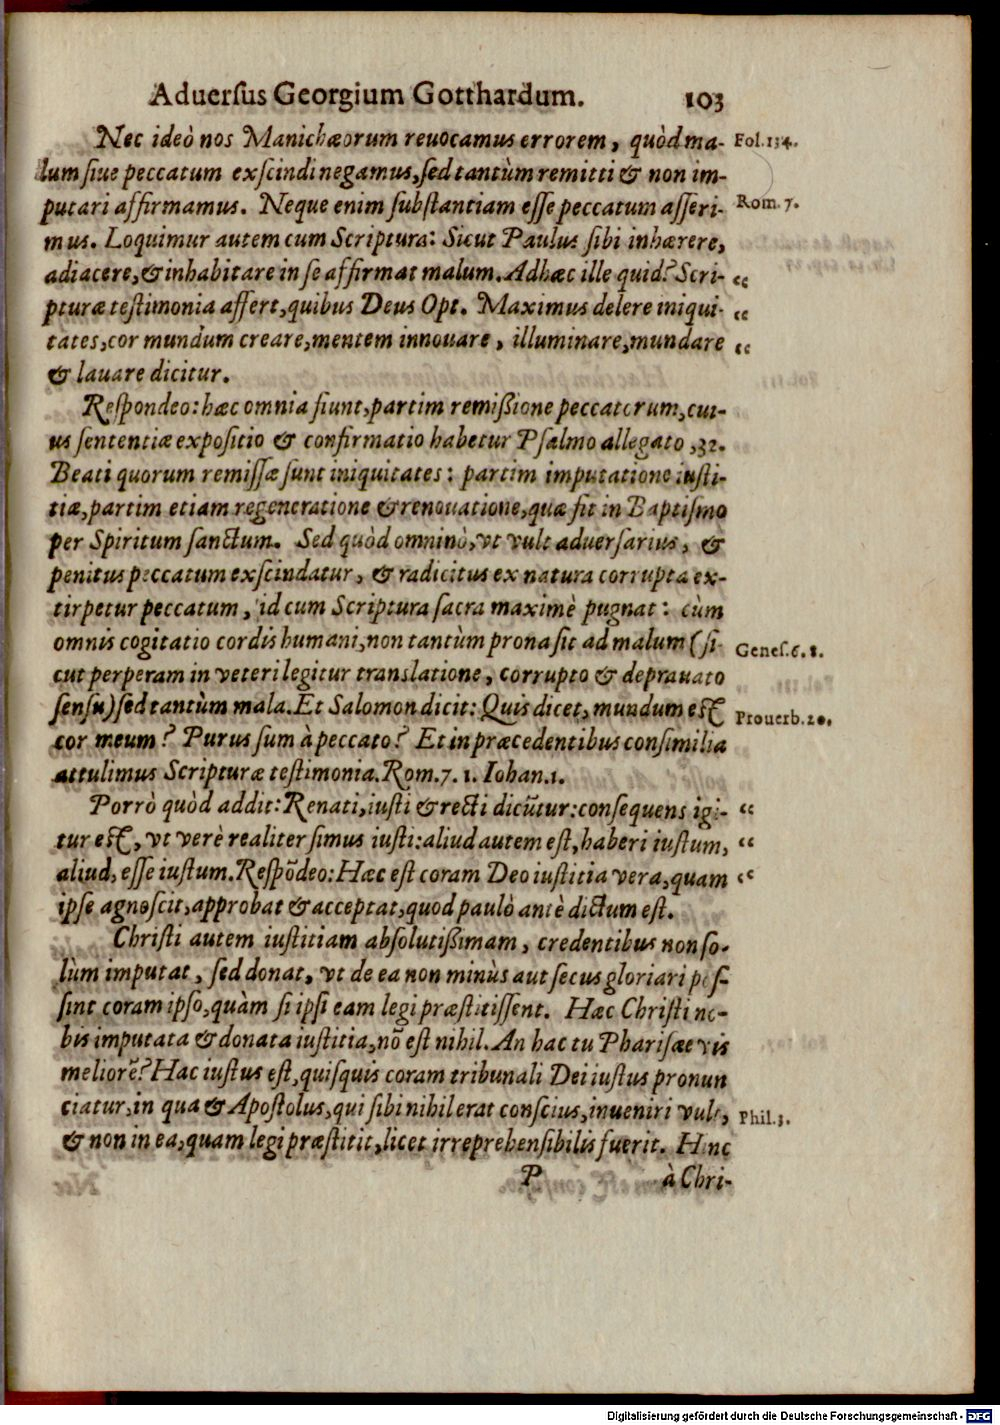 Aduersus Georgium Gotthardum. 103
Nec ideò nos Manichæorum reuocamus errorem, quòd ma- Fol. 134.
lum siue peccatum exscindi negamus, sed tantùm remitti & non im-
putari affirmamus. Neque enim substantiam esse peccatum asseri- Rom. 7.
mus. Loquimur autem cum Scriptura: Sicut Paulus sibi inhærere,
adiacere, & inhabitare in se affirmat malum. Ad hæc ille quid? Scri- “
pturæ testimonia affert, quibus Deus Opt. Maximus delere iniqui- “
tates, cor mundum creare, mentem innouare, illuminare, mundare “
& lauare dicitur.
Respondeo: hæc omnia fiunt, partim remißione peccatorum, cui-
us sententiæ expositio & confirmatio habetur Psalmo allegato, 32.
Beati quorum remissæ sunt iniquitates: partim imputatione iusti-
tiæ, partim etiam regeneratione & renouatione, quæ fit in Baptismo
per Spiritum sanctum. Sed quòd omninò, vt vult aduersarius, &
penitus peccatum exscindatur, & radicitus ex natura corrupta ex-
tirpetur peccatum, id cum Scriptura sacra maximè pugnat: cùm
omnis cogitatio cordis humani, non tantùm prona sit ad malum (si- Genes. 6. 8.
cut perperam in veteri legitur translatione, corrupto & deprauato
sensu) sed tantùm mala. Et Salomon dicit: Quis dicet, mundum est Prouerb. 20.
cor meum? Purus sum à peccato? Et in præcedentibus consimilia
attulimus Scripturæ testimonia. Rom. 7. 1. Iohan. 1.
Porrò quòd addit: Renati, iusti & recti dicūtur: consequens igi- “
tur est, vt verè realiter simus iusti: aliud autem est, haberi iustum, “
aliud, esse iustum. Respōdeo: Hæc est coram Deo iustitia vera, quam “
ipse agnoscit, approbat & acceptat, quod paulò antè dictum est.
Christi autem iustitiam absolutißimam, credentibus non so-
lùm imputat, sed donat, vt de ea non minùs aut secus gloriari pos-
sint coram ipso, quàm si ipsi eam legi præstitissent. Hæc Christi no-
bis imputata & donata iustitia, nō est nihil. An hac tu Pharisæe vis
meliorē? Hac iustus est, quisquis coram tribunali Dei iustus pronun
ciatur, in qua & Apostolus, qui sibi nihil erat conscius, inueniri vult, Phil. 3.
& non in ea, quam legi præstitit, licet irreprehensibilis fuerit. Hinc
P à Chri-
Digitalisierung gefördert durch die Deutsche Forschungsgemeinschaft - DFG